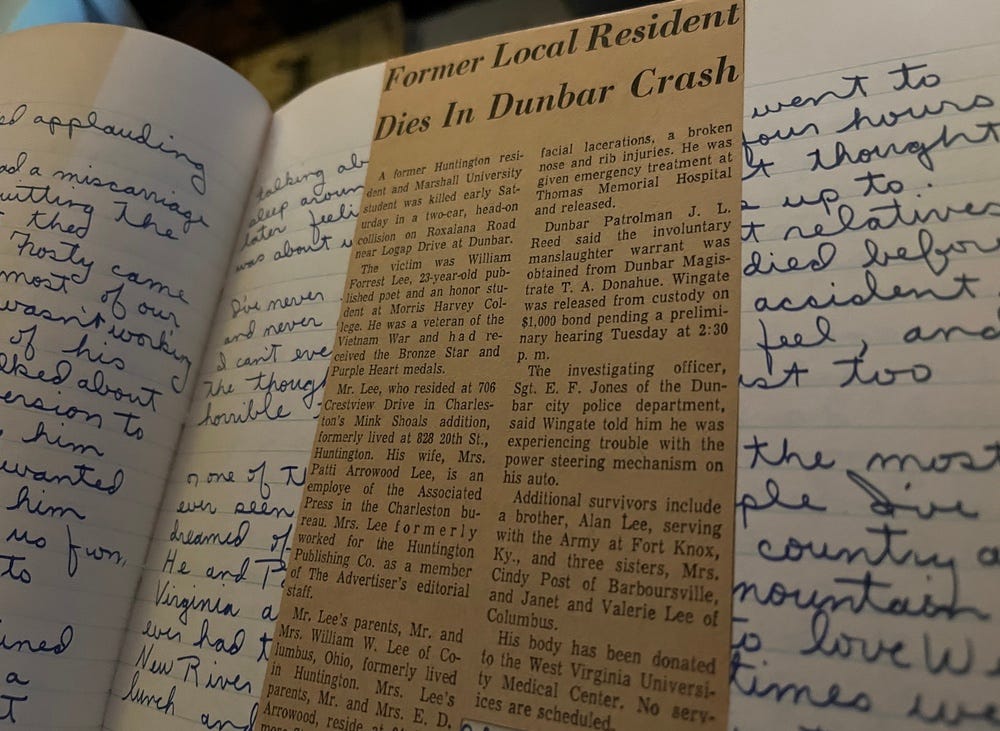 ed applauding
ad a miscarriage
uitting the
t thed
Frosty came
most of our
wasn't working
of his
lked about
ersion to
him
wanted
him
us fun,
to
ined
a
talking ab
sleep aroun
later feeli
was about u
I've never
and never
I can't eve
The though
horrible
one of T
ever seen
dreamed of
He and P
Virginia a
ever had t
New River
lunch and
Former Local Resident
Dies In Dunbar Crash
A former Huntington resi-
dent and Marshall University
student was killed early Sat-
urday in a two-car, head-on
collision on Roxalana Road
near Logap Drive at Dunbar.
The victim was William
Forrest Lee, 23-year-old pub-
lished poet and an honor stu-
dent at Morris Harvey Col-
lege. He was a veteran of the
Vietnam War and had re-
ceived the Bronze Star and
Purple Heart medals.
Mr. Lee, who resided at 706
Crestview Drive in Charles-
ton's Mink Shoals addition,
formerly lived at 828 20th St.,
Huntington. His wife, Mrs.
Patti Arrowood Lee, is an
employe of the Associated
Press in the Charleston bu-
reau. Mrs. Lee formerly
worked for the Huntington
Publishing Co. as a member
of The Advertiser's editorial
staff.
Mr. Lee's parents, Mr. and
Mrs. William W. Lee of Co-
lumbus, Ohio, formerly lived
in Huntington. Mrs. Lee's
parents, Mr. and Mrs. E. D.
Arrowood, reside at
facial lacerations, a broken
nose and rib injuries. He was
given emergency treatment at
Thomas Memorial Hospital
and released.
Dunbar Patrolman J. L.
Reed said the involuntary
manslaughter warrant was
obtained from Dunbar Magis-
trate T. A. Donahue. Wingate
was released from custody on
$1,000 bond pending a prelimi-
nary hearing Tuesday at 2:30
p. m.
The investigating officer,
Sgt. E. F. Jones of the Dun-
bar city police department,
said Wingate told him he was
experiencing trouble with the
power steering mechanism on
his auto.
Additional survivors include
a brother, Alan Lee, serving
with the Army at Fort Knox,
Ky., and three sisters, Mrs.
Cindy Post of Barboursville,
and Janet and Valerie Lee of
Columbus.
His body has been donated
to the West Virginia Universi-
ty Medical Center. No serv-
ices are scheduled.
went to
four hours
t thought
s up to.
t relatives
died before
accident.
feel, and
st two
the most
ple I've
country a
mountain
to love W
times we